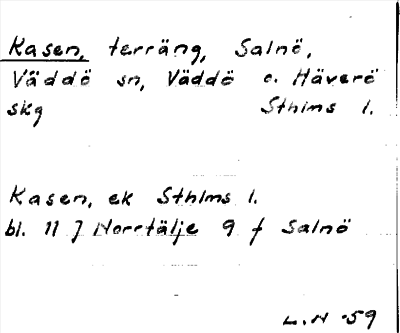 Kasen, terräng, Salnö,
Väddö sn, Väddö o. Häverö
skg Sthlms l.
Kasen, ek Sthlms l.
bl. 11 J Norrtälje 9 f Salnö
L. H -59